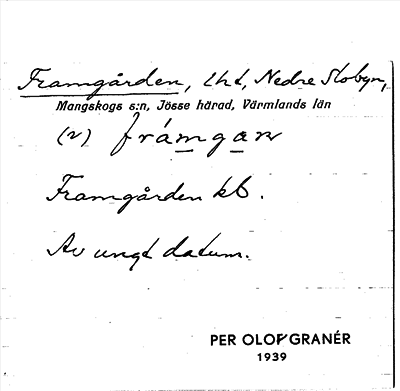 Framgården, lht, Nedre Slobyn,
Mangskogs s:n, Jösse härad, Värmlands län
(2) frámgaɳ
Framgården kb.
Av ungt datum.
PER OLOF GRANÉR
1939